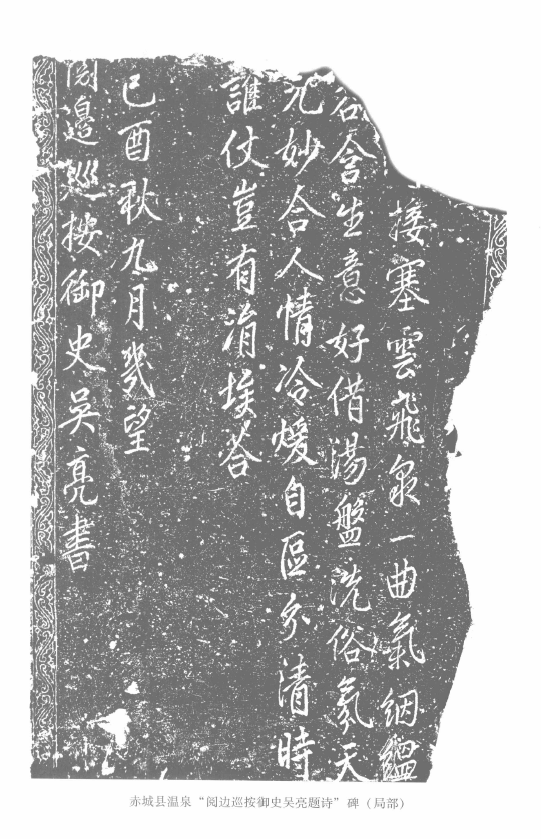 接塞雲飛泉一曲氣絪縕
谷含生意好借湯盤洗俗氛天
妙合人情冷煖自區分清時
誰仗豈有涓埃答
己酉秋九月幾望
閱邊巡按御史吳亮書
赤城县温泉“阅边巡按御史吴亮题诗”碑（局部）